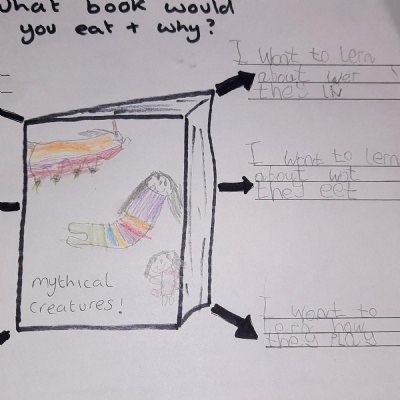 What book would
you eat + why?
I want to lern
about wer
they liv
I want to lern
about wot
they eet
I want to
larn how
they play
mythical
creatures!